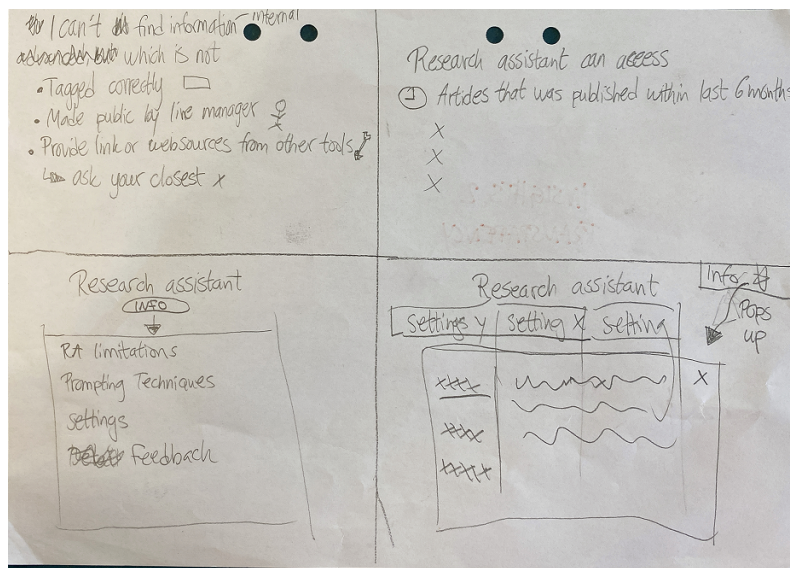 I can't find information internal
which is not
• Tagged correctly
• Made public by line manager
• Provide link or websources from other tools
↳ ask your closest x
Research assistant can access
1 Articles that was published within last 6 months
X
X
X
Research assistant
INFO
RA limitations
Prompting Techniques
Settings
Feedback
Research assistant
Info
Pops
up
Settings Y setting X setting
xxxx X
xxx
xxxx